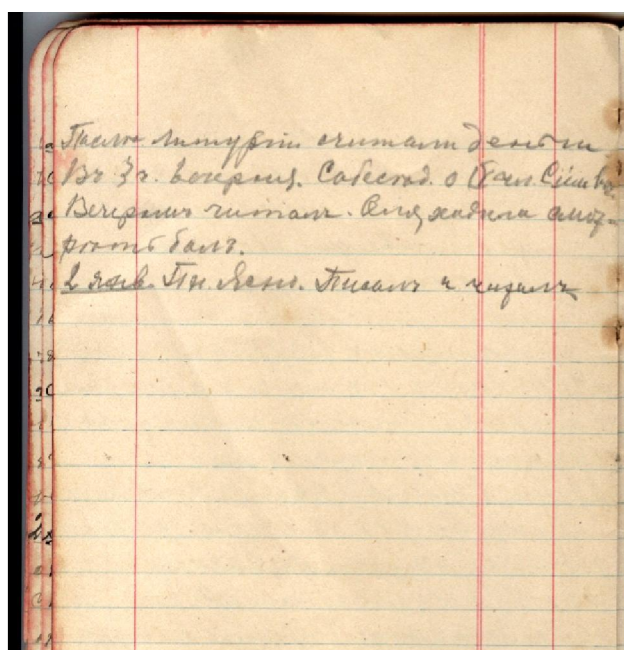 После литургіи считали деньги
Въ 3 ч. вечерня. Собесѣд. о
Вечеромъ читалъ. Оля ходила смот-
рѣть балъ.
2 янв. Пн. Ясно. Писалъ и читалъ